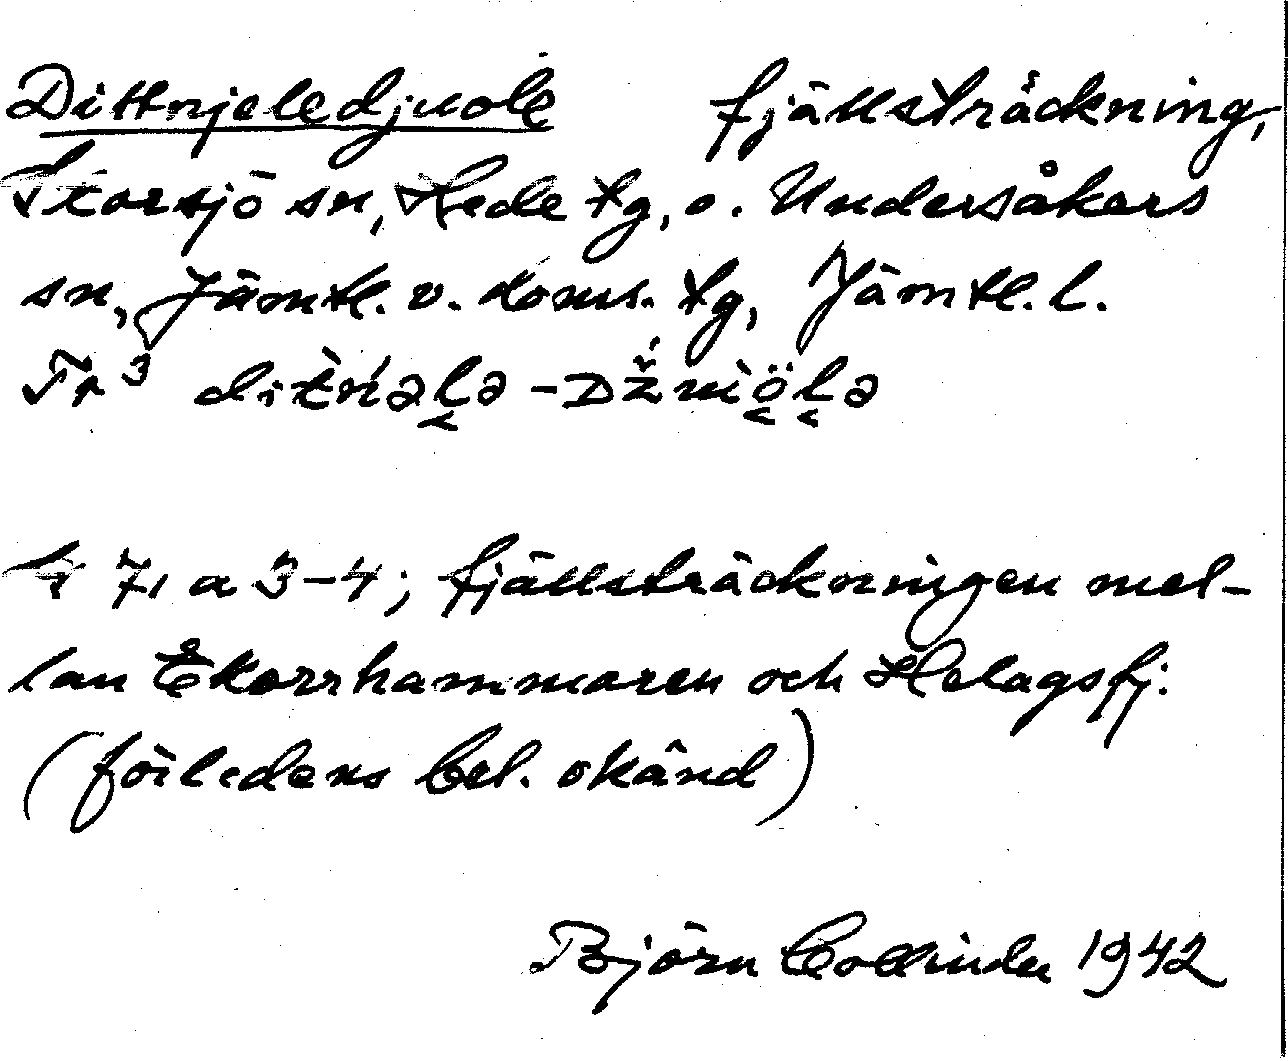 Dittnjeledjuole fjällsträckning,
Storsjö sn, Hede tg, o. Undersåkers
sn, Jämtl. v. doms. tg, Jämtl. l.
Tr³
71 a 3-4; fjällsträckningen mel-
lan Ekorrhammaren och Helagsfj.
(förledens bet. okänd)
Björn Collinder 1942